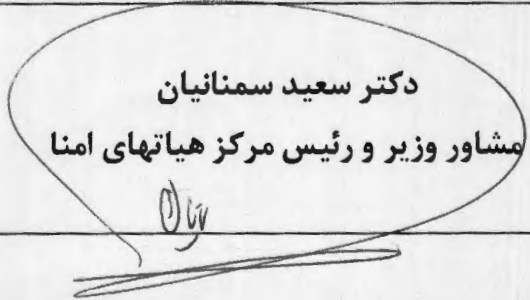 دکتر سعید سمنانیان
مشاور وزیر و رئیس مرکز هیاتهای امنا